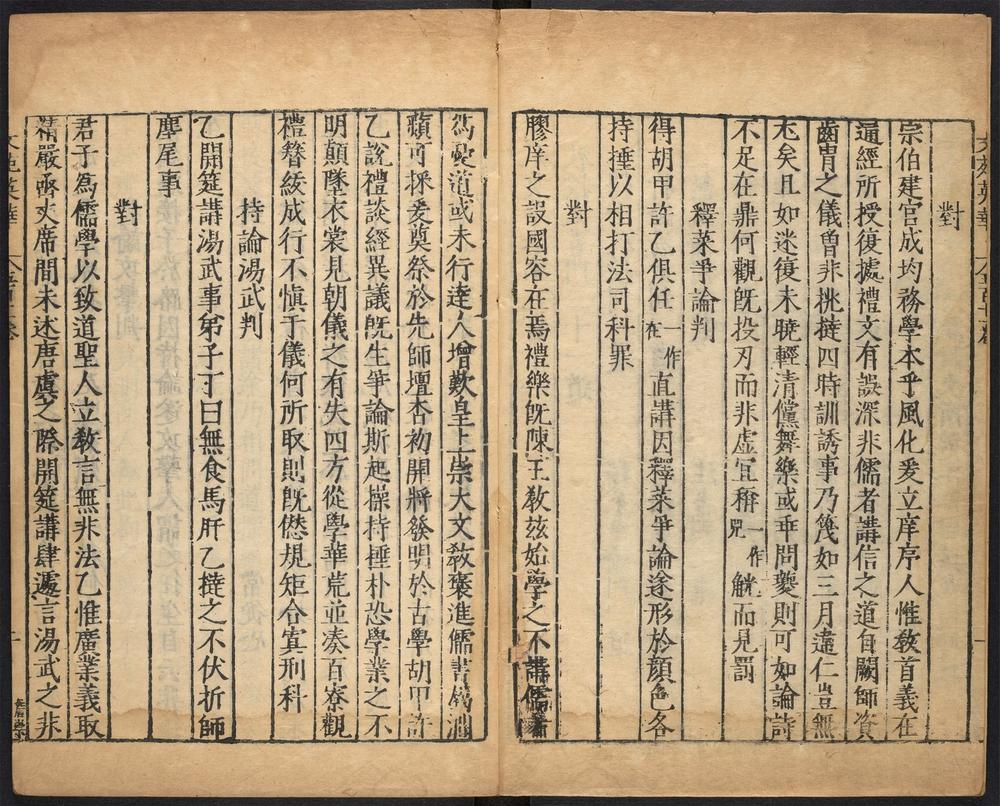 對
宗伯建官成均務學本乎風化爰立庠序人惟教首義在
通經所授復據禮文有誤深非儒者講信之道自闕師資
齒胄之儀曾非桃撻四時訓誘事乃篾如三月違仁豈無
尤矣且如迷復未曉輕清儻舞樂或乖問夔則可如論詩
不足在鼎何觀旣投刃而非虛宜稱一作兕觥而見罰
釋菜爭論判
得胡甲許乙俱任一作在直講因釋菜爭論遂形於顏色各
持捶以相打法司科罪
對
膠庠之設國容在焉禮樂旣陳王教玆始學之不講儒
爲憂道或未行達人增歎皇上崇大文教褒進儒書
蘋可採爰奠祭於先師壇杏初開將發明於古學胡甲許
乙說禮談經異議旣生爭論斯起操持捶朴恐學業之不
明顛墜衣裳見朝儀之有失四方從學華荒並湊百寮觀
禮簪紱成行不愼于儀何所取則旣愆規矩合寘刑科
持論湯武判
乙開筵講湯武事弟子丁曰無食馬肝乙撻之不伏折師
麈尾事
對
君子爲儒學以致道聖人立教言無非法乙惟廣業義取
精嚴函丈席間未述唐虞之際開筵講肆遽言湯武之非